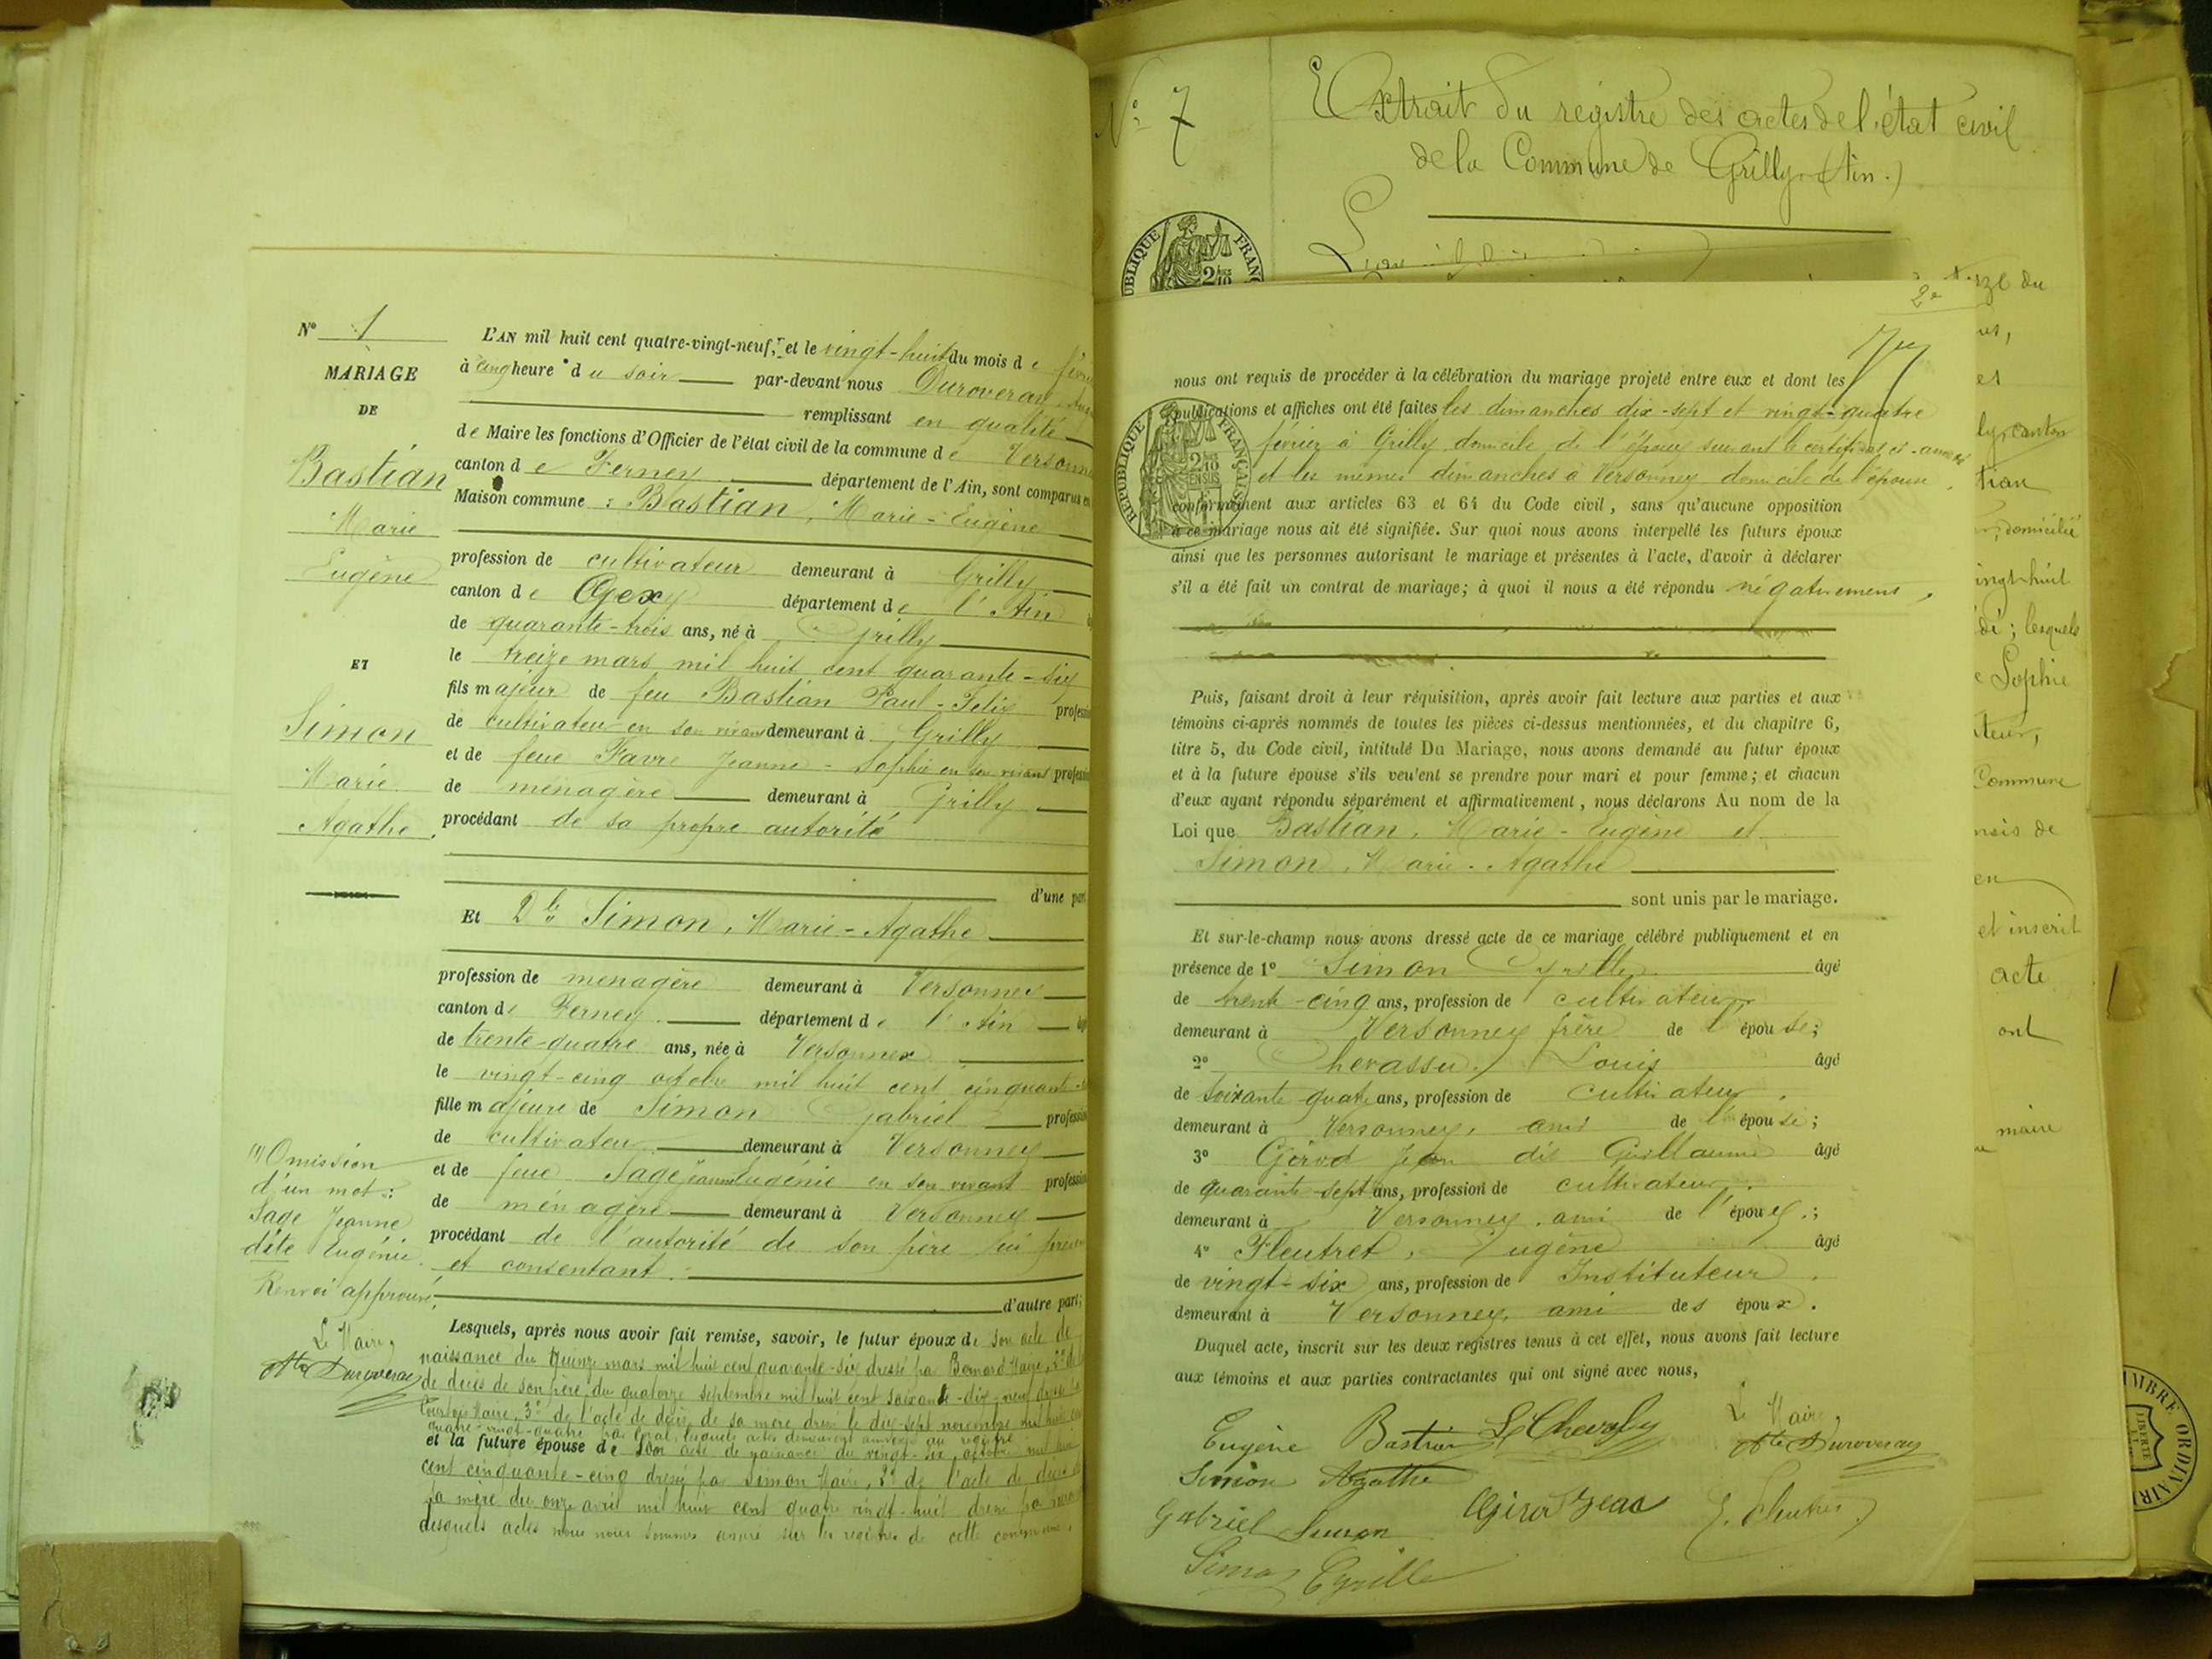 N° 1
MARIAGE
DE
Bastian
Marie
Eugène
ET
Simon
Marie
Agathe
(1) Omission
d'un mot :
Sage Jeanne
dite Eugénie.
Renvoi approuvé,
Le Maire,
Duroveray
L'AN mil huit cent quatre-vingt-neuf, et le vingt-huit du mois de
à cinq heures du soir par-devant nous Duroveray
remplissant en qualité
de Maire les fonctions d'Officier de l'état civil de la commune de
canton de Ferney département de l'Ain, sont comparus en
Maison commune : Bastian, Marie-Eugène
profession de cultivateur demeurant à Grilly
canton de Gex département de l'Ain
de quarante-trois ans, né à Grilly
le treize mars mil huit cent quarante-six
fils majeur de feu Bastian Paul-Felix
de cultivateur en son vivant demeurant à Grilly
et de feue Favre Jeanne-Sophie en son vivant
de ménagère demeurant à Grilly
procédant de sa propre autorité
d'une part
Et Dlle Simon, Marie-Agathe
profession de ménagère demeurant à Versonnex
canton de Ferney département de l'Ain
de trente-quatre ans, née à Versonnex
le vingt-cinq octobre mil huit cent
fille majeure de Simon Gabriel
de cultivateur demeurant à Versonnex
et de feue Sage Jeanne Eugénie en son vivant
de ménagère demeurant à Versonnex
procédant de l'autorité de son père ici
et consentant.
d'autre part;
Lesquels, après nous avoir fait remise, savoir, le futur époux de son acte de
naissance du quinze mars mil huit cent quarante-six dressé par Bernard Maire, 2° de
de décès de son père du quatorze septembre mil huit cent soixante-dix-neuf dressé
Maire, 3° de l'acte de décès de sa mère dressé le dix-sept novembre mil huit cent
quatre-vingt-quatre par lesquels actes demeurent annexés au registre
et la future épouse de son acte de naissance du vingt-six octobre mil huit
cent cinquante-cinq dressé par Simon Maire, 2° de l'acte de décès de
sa mère du onze avril mil huit cent quatre vingt-huit dressé par nous
desquels actes nous nous sommes assuré sur les registres de cette commune.
N° 7
Extrait du registre des actes de l'état civil
de la Commune de Grilly (Ain.)
RÉPUBLIQUE FRANÇAISE
nous ont requis de procéder à la célébration du mariage projeté entre eux et dont les
publications et affiches ont été faites les dimanches dix-sept et vingt-quatre
février à Grilly domicile de l'époux suivant le certificat
et les mêmes dimanches à Versonnex domicile de l'épouse,
conformément aux articles 63 et 64 du Code civil, sans qu'aucune opposition
à ce mariage nous ait été signifiée. Sur quoi nous avons interpellé les futurs époux
ainsi que les personnes autorisant le mariage et présentes à l'acte, d'avoir à déclarer
s'il a été fait un contrat de mariage; à quoi il nous a été répondu négativement.
Puis, faisant droit à leur réquisition, après avoir fait lecture aux parties et aux
témoins ci-après nommés de toutes les pièces ci-dessus mentionnées, et du chapitre 6,
titre 5, du Code civil, intitulé Du Mariage, nous avons demandé au futur époux
et à la future épouse s'ils veulent se prendre pour mari et pour femme; et chacun
d'eux ayant répondu séparément et affirmativement, nous déclarons Au nom de la
Loi que Bastian, Marie-Eugène et
Simon, Marie-Agathe
sont unis par le mariage.
Et sur-le-champ nous avons dressé acte de ce mariage célébré publiquement et en
présence de 1° Simon Cyrille âgé
de trente-cinq ans, profession de cultivateur
demeurant à Versonnex frère de l'épouse;
2° Chevassu, Louis âgé
de soixante-quatre ans, profession de cultivateur,
demeurant à Versonnex, ami de l'épouse;
3° Girod Jean dit Guillaume âgé
de quarante-sept ans, profession de cultivateur,
demeurant à Versonnex, ami de l'époux;
4° Fleutret, Eugène âgé
de vingt-six ans, profession de Instituteur,
demeurant à Versonnex, ami des époux.
Duquel acte, inscrit sur les deux registres tenus à cet effet, nous avons fait lecture
aux témoins et aux parties contractantes qui ont signé avec nous,
Eugène Bastian Ls Chevassu Le Maire,
Simon Agathe Duroveray
Gabriel Simon Girod Jean E. Fleutret
Simon Cyrille
du
et
canton
tian
domicilié
vingt-huit
lesquels
Sophie
teur,
Commune
mois de
en
et inscrit
acte
ont
maire
TIMBRE ORDINAIRE